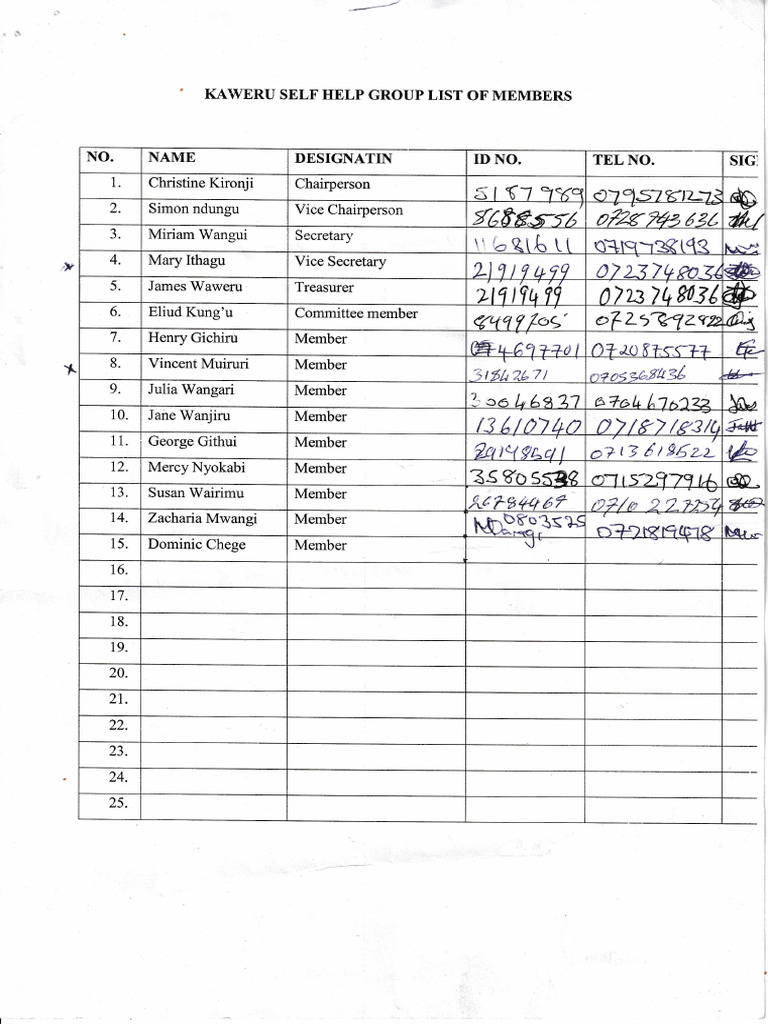 KAWERU SELF HELP GROUP LIST OF MEMBERS
NO. NAME DESIGNATIN ID NO. TEL NO. SIG
1. Christine Kironji Chairperson 5187989 0795781273
2. Simon ndungu Vice Chairperson 0728743636
3. Miriam Wangui Secretary 11681611 0719738193
4. Mary Ithagu Vice Secretary 21919499 0723748036
5. James Waweru Treasurer 21919499 0723748036
6. Eliud Kung'u Committee member 8499705
7. Henry Gichiru Member 4697701 0720875577
8. Vincent Muiruri Member 31842671 0705368436
9. Julia Wangari Member 30646837 0704670233
10. Jane Wanjiru Member 13610740 0718718314
11. George Githui Member 0713618522
12. Mercy Nyokabi Member 0715297916
13. Susan Wairimu Member 26784967
14. Zacharia Mwangi Member 0803525
15. Dominic Chege Member 0721819478
16.
17.
18.
19.
20.
21.
22.
23.
24.
25.